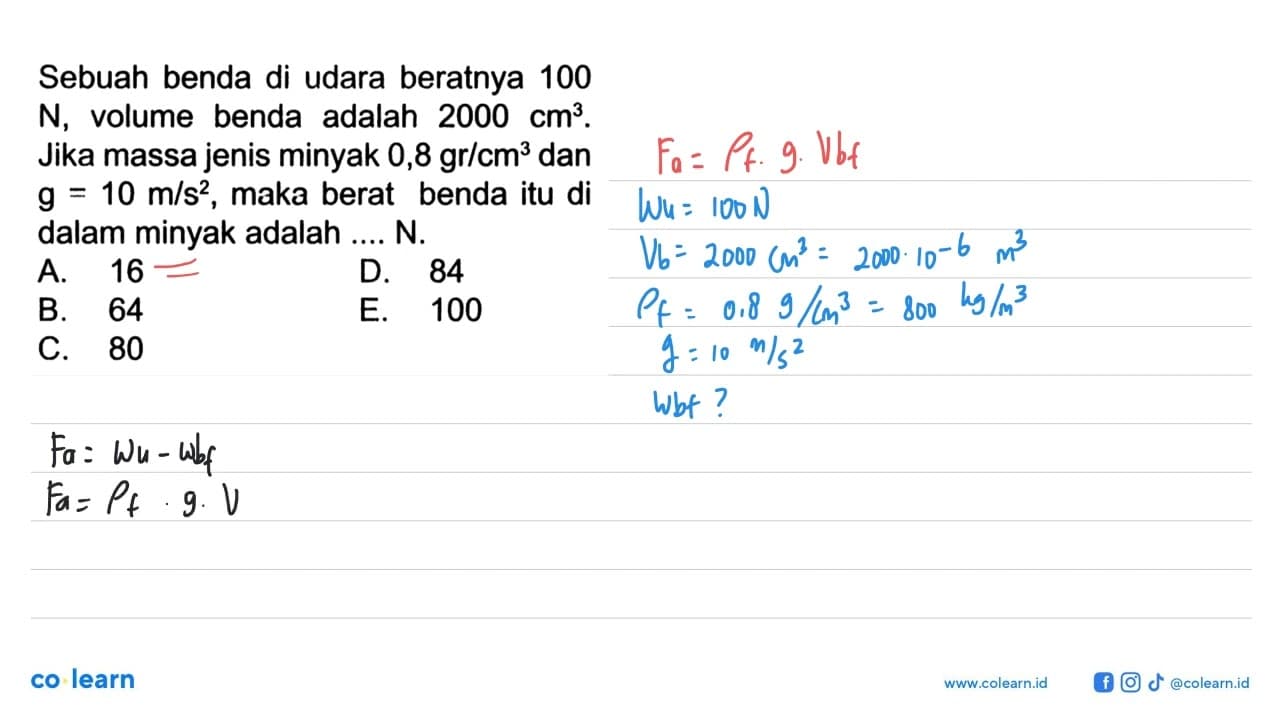 Sebuah benda di udara beratnya 100
N, volume benda adalah 2000 cm³.
Jika massa jenis minyak 0,8 gr/cm³ dan
g = 10 m/s², maka berat benda itu di
dalam minyak adalah .... N.
A. 16 D. 84
B. 64 E. 100
C. 80
Fa = ρf . g. Vbf
Wu = 100 N
Vb = 2000 cm³ = 2000 . 10⁻⁶ m³
ρf = 0.8 g/cm³ = 800 kg/m³
g = 10 m/s²
Wbf ?
Fa = Wu - Wbf
Fa = ρf . g. V
co learn
www.colearn.id
@colearn.id